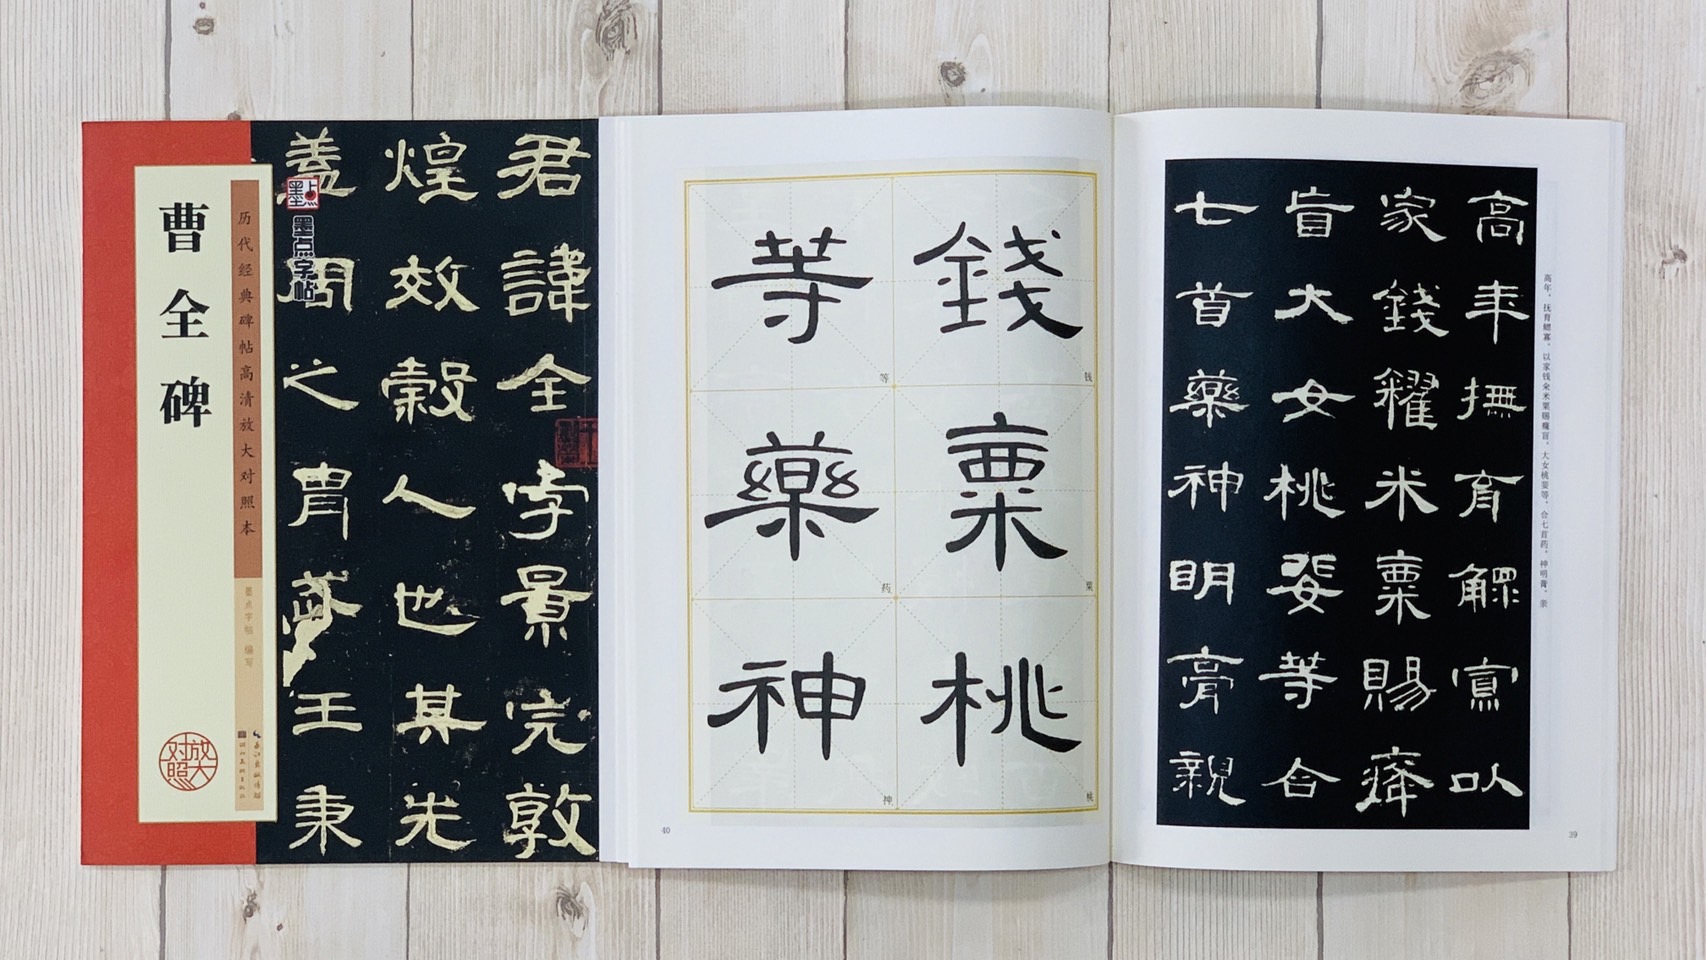 曹全碑
历代经典碑帖高清放大对照本
墨点字帖 编写
长江出版传媒
湖北美术出版社
放大对照
墨点
墨点字帖
君諱全字景完敦
煌效穀人也其先
蓋周之胄武王秉
高年，抚育鳏寡，以家钱籴米粟赐癃盲。大女桃婓等，合七首药，神明膏，亲
高年撫育鰥寡以
家錢糴米粟賜癃
盲大女桃婓等合
七首藥神明膏親
39
錢粟桃
钱
粟
桃
等藥神
等
药
神
40